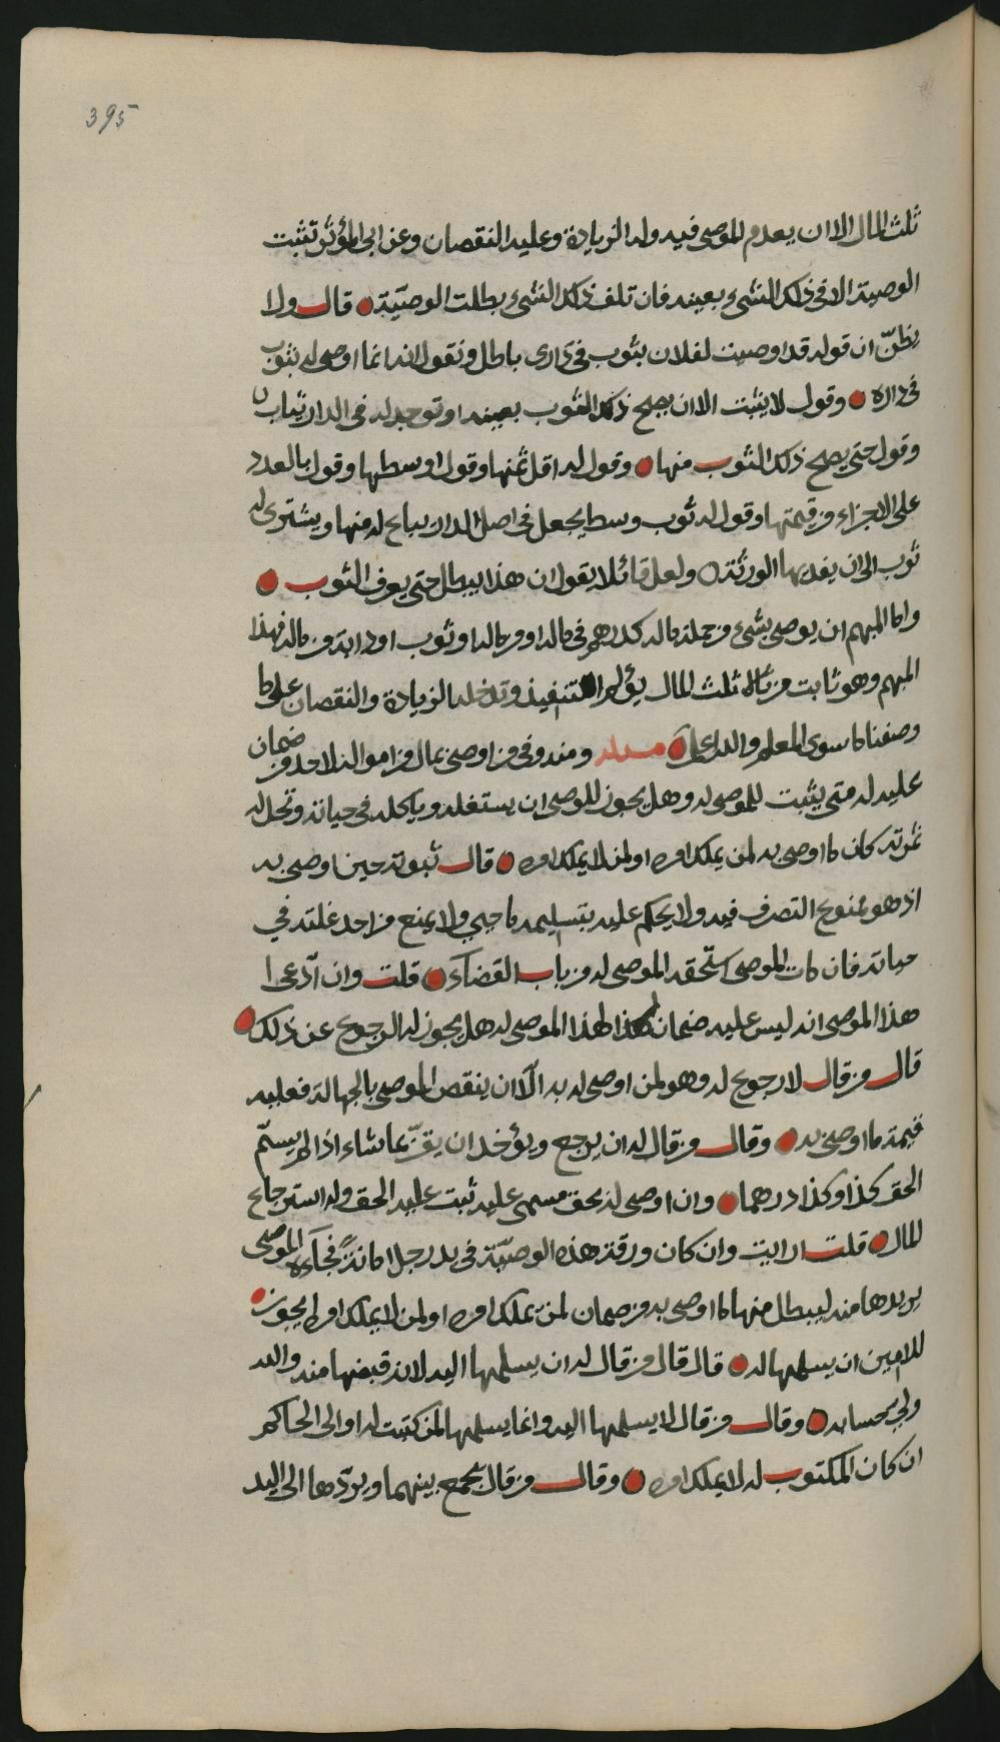 395
ثلث المال الا ان يعدم الموصى فيه وله الزيادة وعليه النقصان وعن ابى المؤثر تثبت
الوصية الا فى ذلك الشىء بعينه فان تلف ذلك الشىء بطلت الوصيّة قال ولا
يظنّ ان قوله قد اوصيت لفلان بثوب فى دارى باطل ونقول انه انما اوصى له بثوب
فى داره وقول لا يثبت الا ان يصح ذلك الثوب بعينه او توجد له فى الدار ثياب
وقول حتى يصح ذلك الثوب منها وقول له اقل ثمنها وقول اوسطها وقول بالعدد
على الاجزاء من قيمتها وقول له ثوب وسط يجعل فى اصل الدار يباع له منها ويشترى له
ثوب الى ان يفديها الورثة ولعل قائلا يقول ان هذا يبطل حتى يعرف الثوب
واما المبهم ان يوصى بشىء من جملة ماله كدرهم فى ماله او من ماله او ثوب او دابة من ماله فهذا
المبهم وهو ثابت من ثلث المال يؤخر الى التنفيذ وتدخله الزيادة والنقصان على ما
وصفنا ما سوى المعلم والله اعلم مسئلة ومنه وفى من اوصى بمال من امواله لاحد من ضمان
عليه له متى يثبت للموصى له وهل يجوز للموصى ان يستغله ويأكله فى حياته وتحل له
ثمرته كان ما اوصى به لمن يملك امره او لمن لا يملك امره قال ثبوته حين اوصى به
اذ هو ممنوع التصرف فيه ولا يحكم عليه بتسليمه ما حيي ولا يمنع من اخذ غلته في
حياته فان مات الموصى استحقه الموصى له من باب القضاء قلت وان ادّعى
هذا الموصى انه ليس عليه ضمان لهذا الموصى له هل يجوز له الرجوع عن ذلك
قال من قال لا رجوع له وهو لمن اوصى له به الّا ان ينقض الموصى بالجهالة فعليه
قيمة ما اوصى به وقال من قال له ان يرجع ويؤخذ ان يقرّ بما شاء اذا لم يسمّ
الحق كذا وكذا درهما وان اوصى له بحق مسمى عليه ثبت عليه الحق وله استرجاع
المال قلت ارايت وان كان ورقة هذه الوصيّة فى يد رجل امانةً فجآءه الموصى
يريدها منه ليبطل منها ما اوصى به من ضمان لمن يملك امره او لمن لا يملك امره ايجوز
للامين ان يسلمها له قال قال من قال له ان يسلمها اليه لانه قبضها منه والله
ولي حسابه وقال من قال لا يسلمها اليه وانما يسلمها لمن كتبت له او الى الحاكم
ان كان المكتوب له لا يملك امره وقال من قال يجمع بينهما ويردّها الى اليد